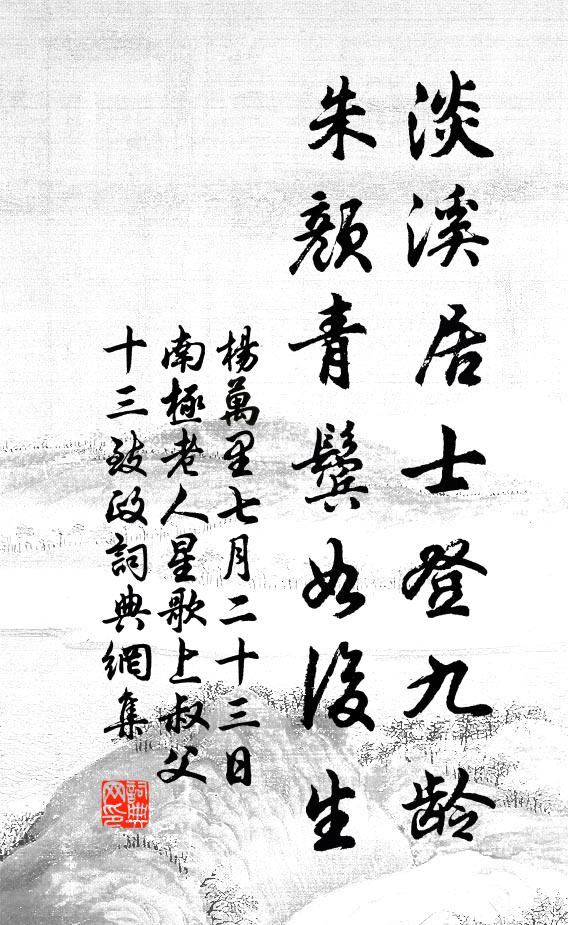 淡溪居士登九龄
朱颜青鬓如后生
楊萬里七月二十三日
南極老人星歌上叔父
十三致政詞典網集
詞典网印